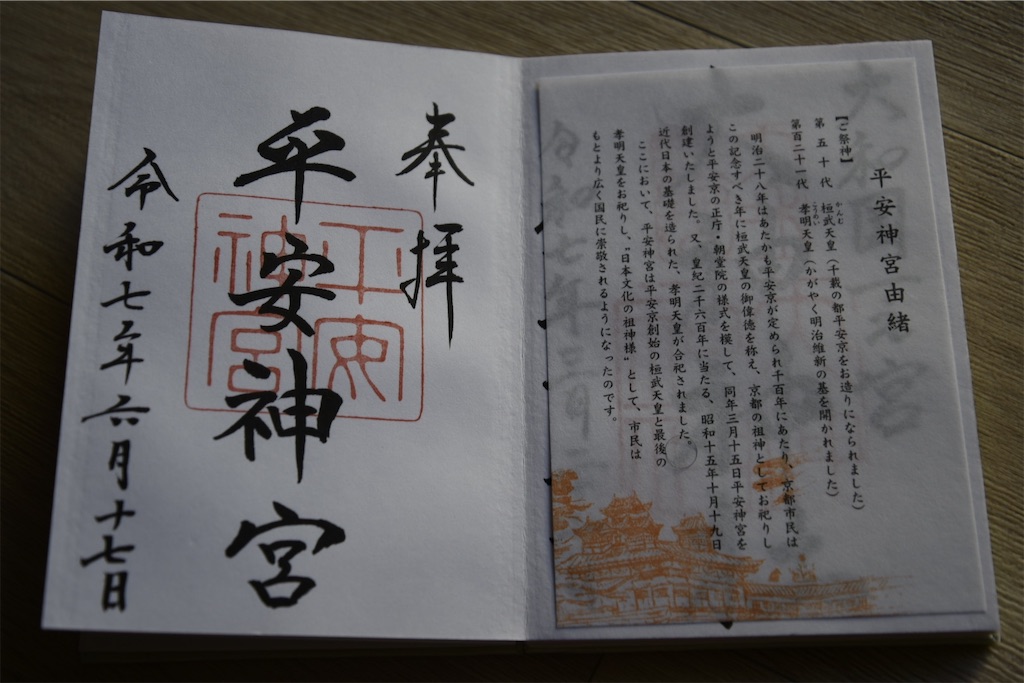 平安神宮由緒
【ご祭神】
第五十代 桓武天皇(千載の都平安京をお造りになられました)
かんむ
第百二十一代 孝明天皇(かがやく明治維新の基を開かれました)
こうめい
明治二八年はあたかも平安京が定められ千百年にあたり、京都市民は
この記念すべき年に桓武天皇の御偉徳を称え、京都の祖神としてお祀りし
ようと平安京の正庁・朝堂院の様式を模して、同年三月十五日平安神宮を
創建いたしました。又、皇紀二千六百年に当たる、昭和十五年十月十九日
近代日本の基礎を造られた、孝明天皇が合祀されました。
ここにおいて、平安神宮は平安京創始の桓武天皇と最後の
孝明天皇をお祀りし、"日本文化の祖神様"として、市民は
もとより広く国民に崇敬されるようになったのです。
奉拝
平安神宮
平安
神宮
令和七年六月十七日